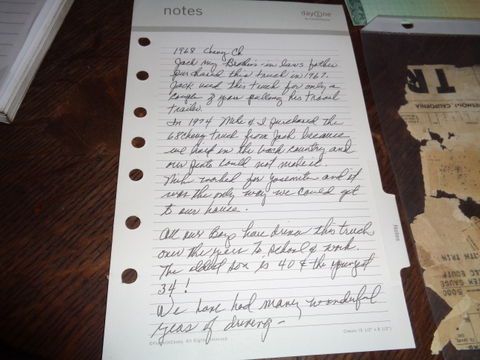 notes
dayOne
1968 Chevy Ch
Jack my Brother-in laws father
Purchased this truck in 1967.
Jack used this truck for only a
couple of years pulling his travel
trailer.
In 1974 Mike & I purchased the
68 Chevy truck from Jack because
we lived in the back country and
our could not make it
Mike worked for Yosemite and it
was the only way we could get
to our house.
All our Boys have driven this truck
over the years to School & work.
The oldest son is 40 & the youngest
34!
We have had many wonderful
years of driving -
TR
CALIFORNIA